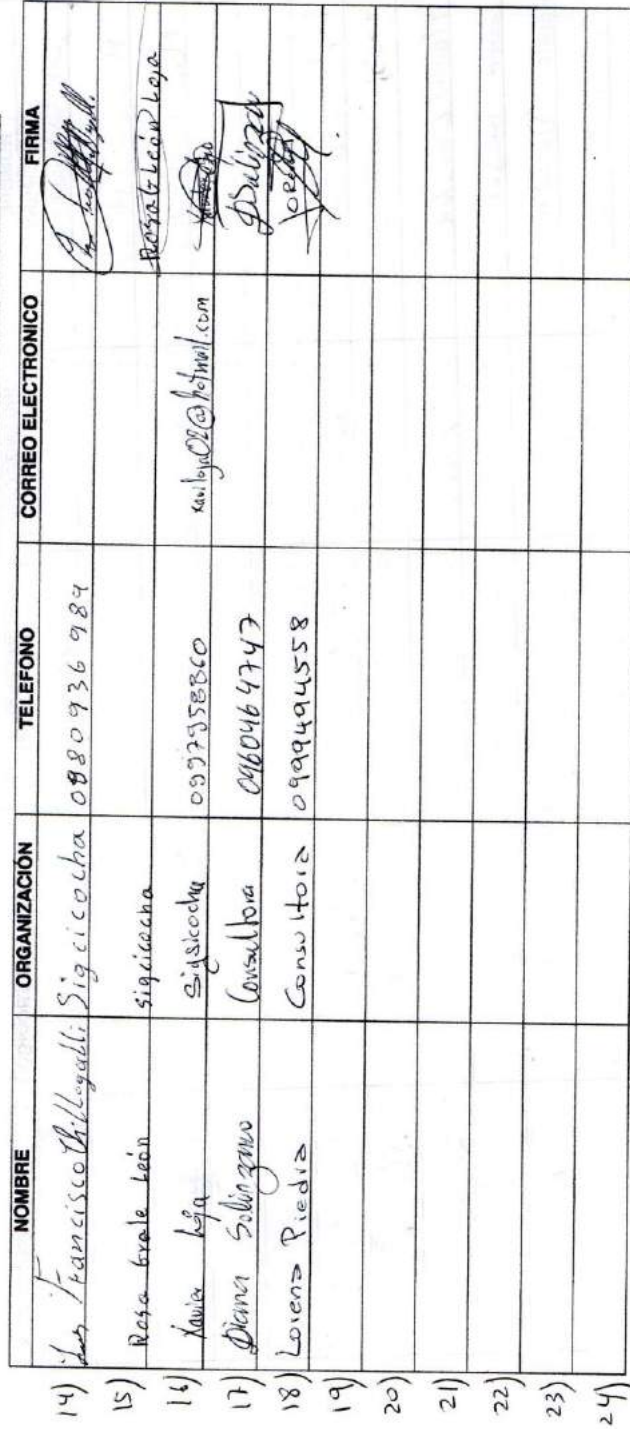 NOMBRE ORGANIZACIÓN TELEFONO CORREO ELECTRONICO FIRMA
14) Luis Francisco Chillogalli Sigcicocha 0980936984
15) Rosa León sigcicocha Rosa G León Loja
16) Xavier Loja Sigsicocha 0997958860 xaviloja02@hotmail.com
17) Diana Solórzano Consultora 0960464747
18) Lorena Piedra Consultora 0999494558
19)
20)
21)
22)
23)
24)